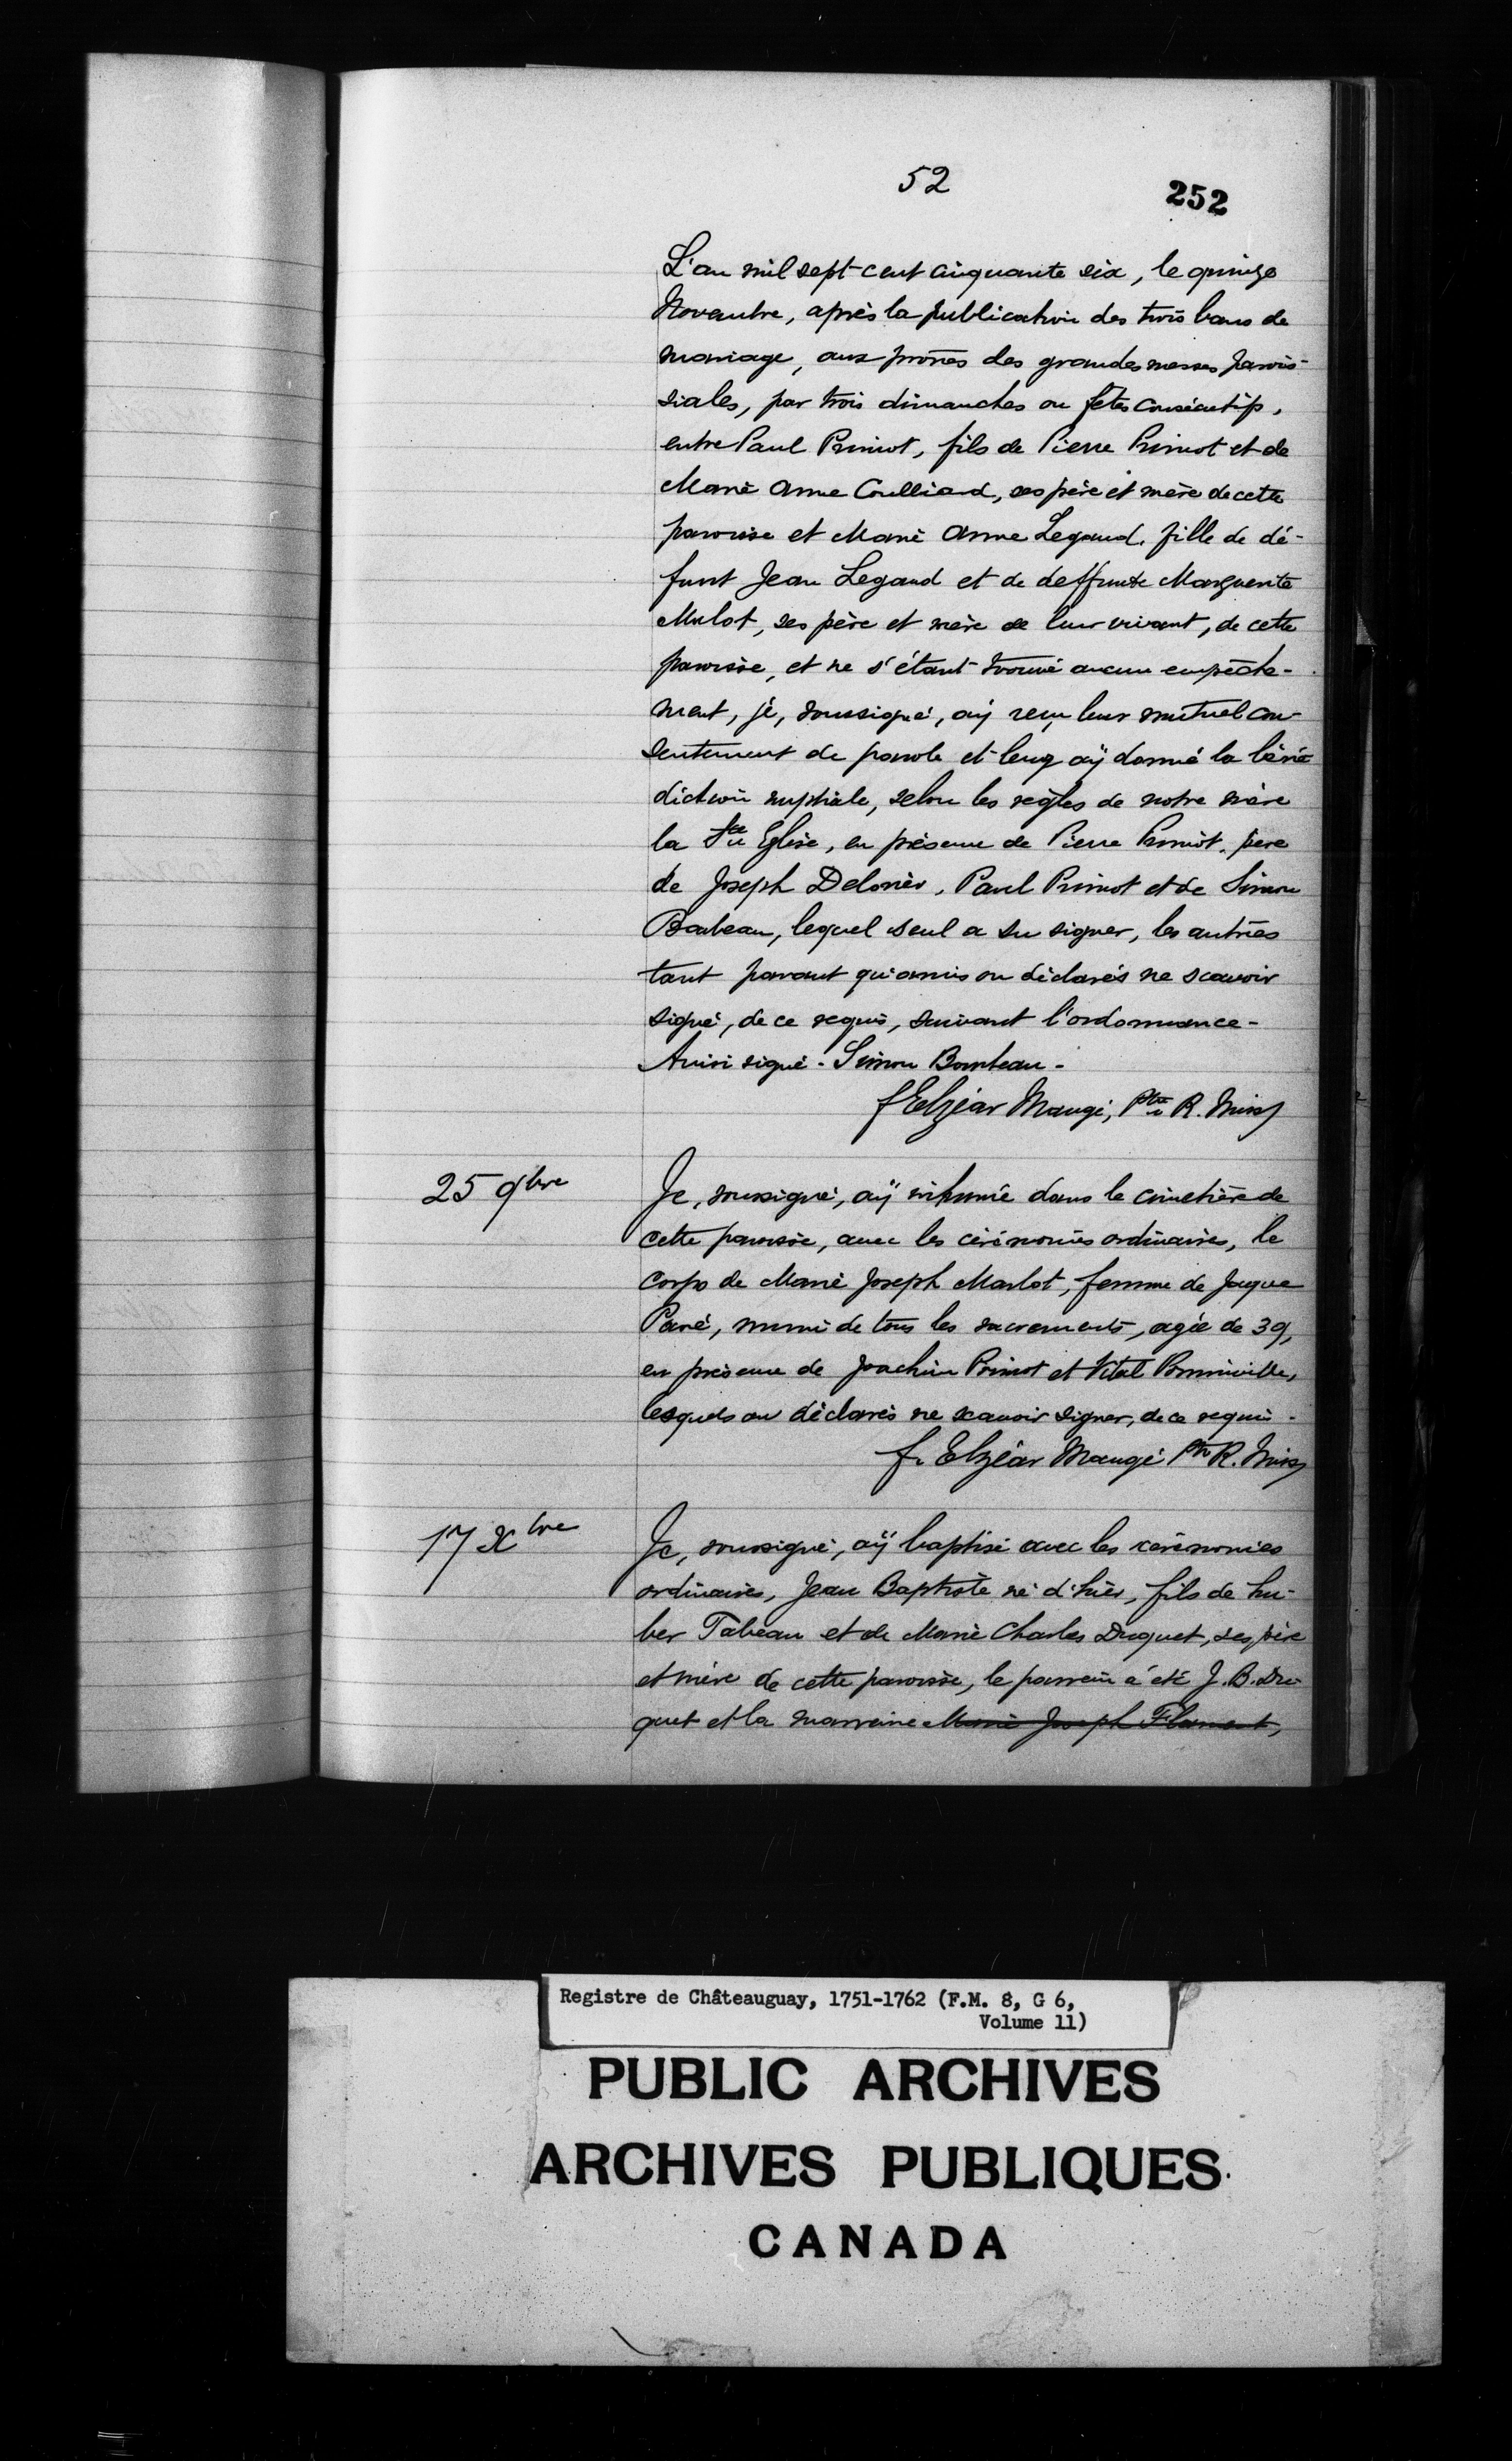 52
252
L'an mil sept cent cinquante six, le quinze
Novembre, après la publication des trois bans de
mariage, aux prônes des grandes messes parois-
siales, par trois dimanches ou fêtes consécutifs,
entre Paul Primot, fils de Pierre Primot et de
Marie Anne Coulliard, ses père et mère de cette
paroisse et Marie Anne Legaud, fille de dé-
funt Jean Legaud et de deffunte Marguerite
Mulot, ses père et mère de leur vivant, de cette
paroisse, et ne s'étant trouvé aucun empêche-
ment, je, soussigné, aÿ reçu leur mutuel con-
sentement de parole et leur aÿ donné la béné
diction nuptiale, selon les règles de notre mère
la Ste Eglise, en présence de Pierre Primot, père
de Joseph Delorier, Paul Primot et de Simon
Barbeau, lequel seul a su signer, les autres
tant parant qu'amis on déclarés ne scavoir
signé, de ce requis, suivant l'ordonnance-
Ainsi signé - Simon Bombeau -
f Elzéar Maugé, Ptre R. Miss
25 9bre
Je, soussigné, aÿ inhumé dans le cimetière de
cette paroisse, avec les cérémonies ordinaires, le
corps de Marie Joseph Marlot, femme de Jaque
Paré, muni de tous les sacrements, agée de 39,
en présence de Joachim Primot et Vital Primiville,
lesquels on déclarés ne scavoir signer, de ce requis -
f. Elzéar Maugé Ptre R. Miss
17 Xbre
Je, soussigné, aÿ baptisé avec les cérémonies
ordinaires, Jean Baptiste né d'hier, fils de hu-
ber Tabeau et de Marie Charles Duquet, ses père
et mère de cette paroisse, le parrein a été J. B. Du-
quet et la marreine Marie Joseph Flament,
Registre de Châteauguay, 1751-1762 (F.M. 8, G 6,
Volume 11)
PUBLIC ARCHIVES
ARCHIVES PUBLIQUES
CANADA